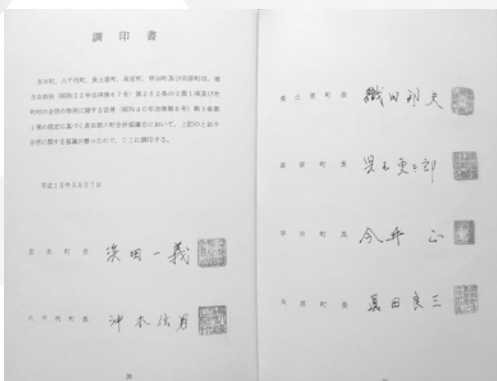 調印書
吉田町、八千代町、美土里町、高宮町、甲田町及び向原町は、地
方自治法（昭和22年法律第67号）第252条の2第1項及び市
町村の合併の特例に関する法律（昭和40年法律第6号）第3条第
1項の規定に基づく高田郡六町合併協議会において、上記のとおり
合併に関する協議が整ったので、ここに調印する。
平成15年5月27日
吉田町長 浜田一義
八千代町長 沖本信男
28
美土里町長 織田邦夫
高宮町長 児玉更太郎
甲田町長 今井正
向原町長 眞田良三